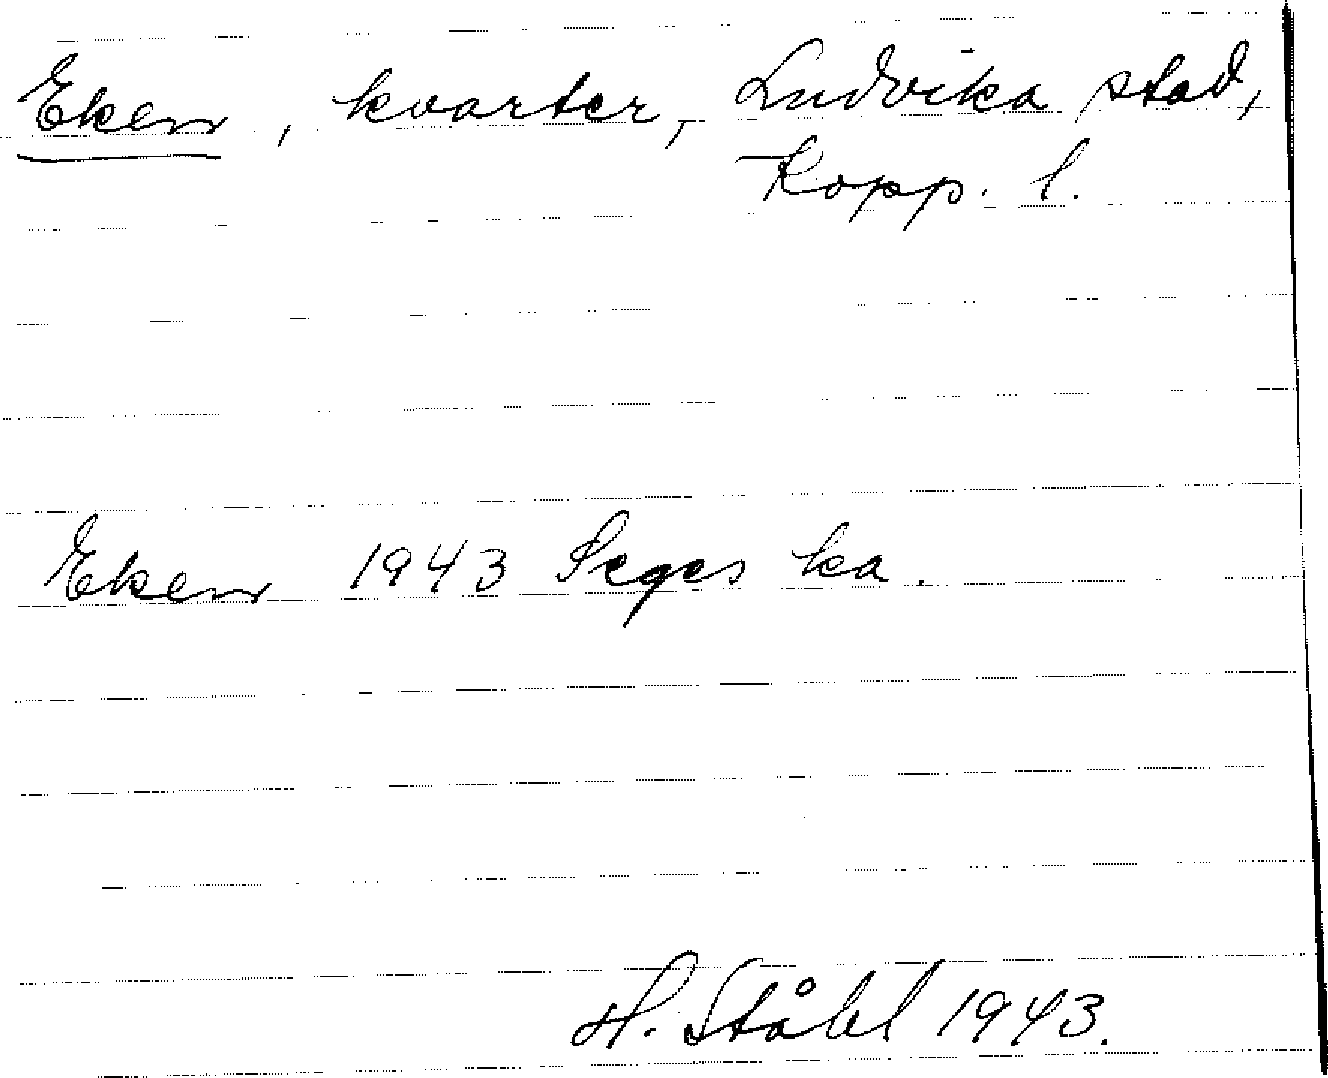 Eken, kvarter, Ludvika stad,
Kopp. l.
Eken 1943 Seges ka.
H. Ståhl 1943.